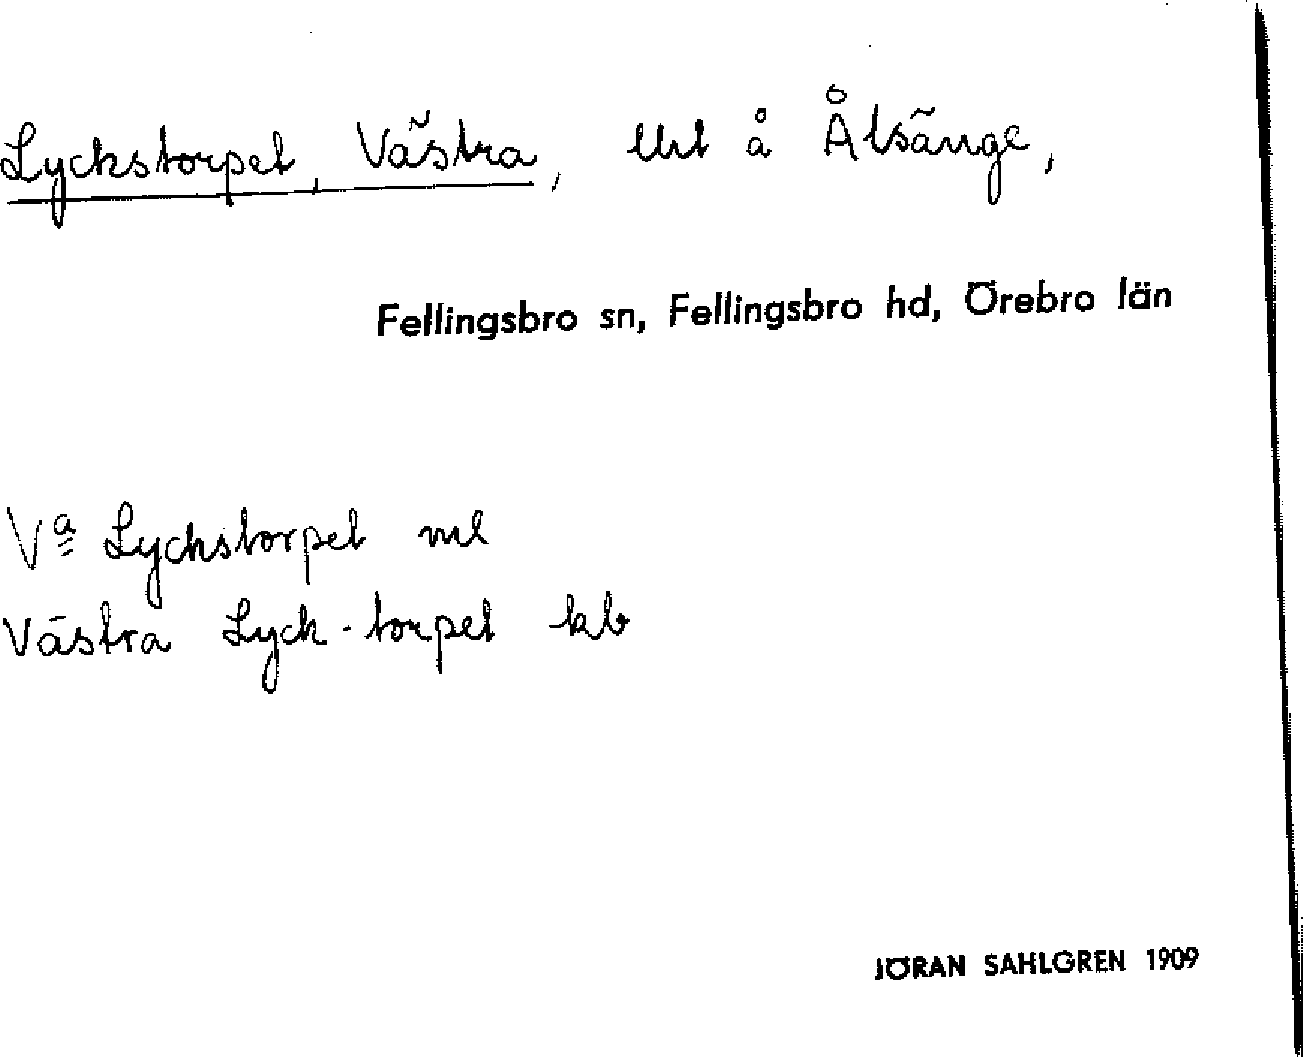 Lyckstorpet, Västra, lht å Ålsänge,
Fellingsbro sn, Fellingsbro hd, Örebro län
Va Lyckstorpet
Västra Lyck-torpet kb
JÖRAN SAHLGREN 1909